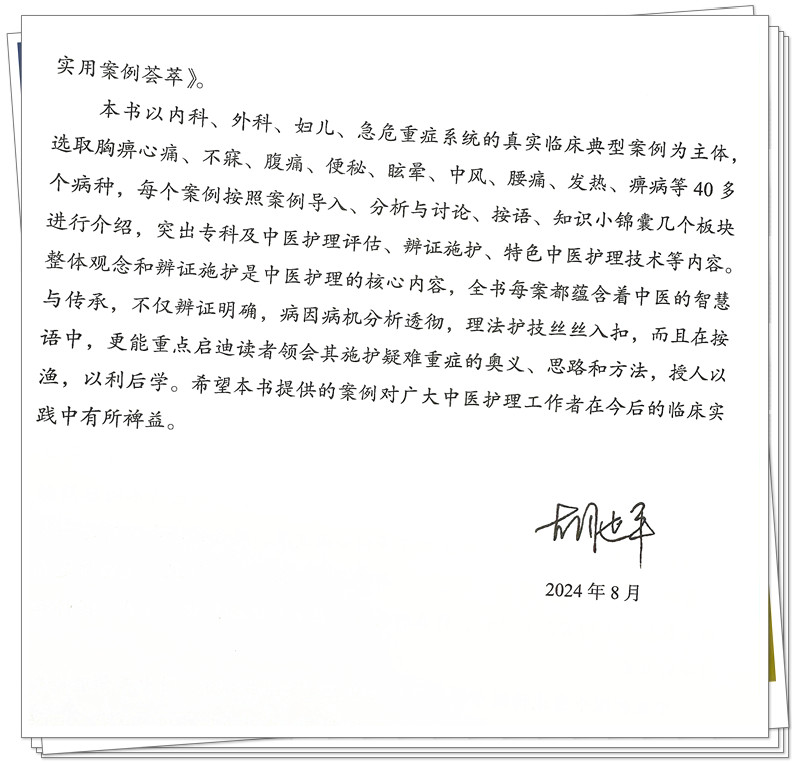 实用案例荟萃》。
本书以内科、外科、妇儿、急危重症系统的真实临床典型案例为主体，
选取胸痹心痛、不寐、腹痛、便秘、眩晕、中风、腰痛、发热、痹病等 40 多
个病种，每个案例按照案例导入、分析与讨论、按语、知识小锦囊几个板块
进行介绍，突出专科及中医护理评估、辨证施护、特色中医护理技术等内容。
整体观念和辨证施护是中医护理的核心内容，全书每案都蕴含着中医的智慧
与传承，不仅辨证明确，病因病机分析透彻，理法护技丝丝入扣，而且在按
语中，更能重点启迪读者领会其施护疑难重症的奥义、思路和方法，授人以
渔，以利后学。希望本书提供的案例对广大中医护理工作者在今后的临床实
践中有所裨益。
2024 年 8 月